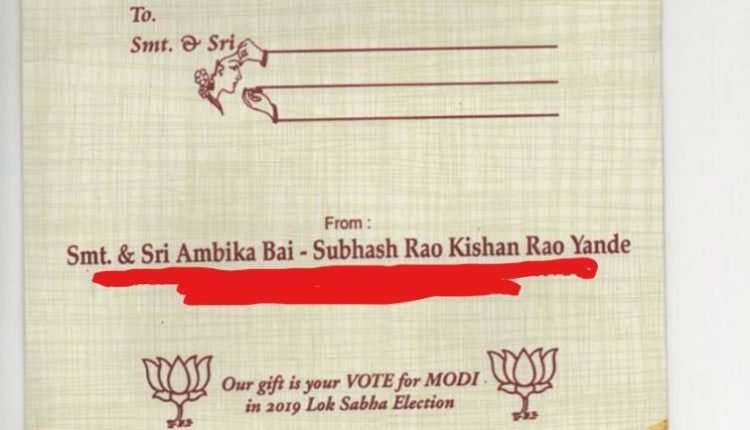 To.
Smt. & Sri
From :
Smt. & Sri Ambika Bai - Subhash Rao Kishan Rao Yande
Our gift is your VOTE for MODI
in 2019 Lok Sabha Election